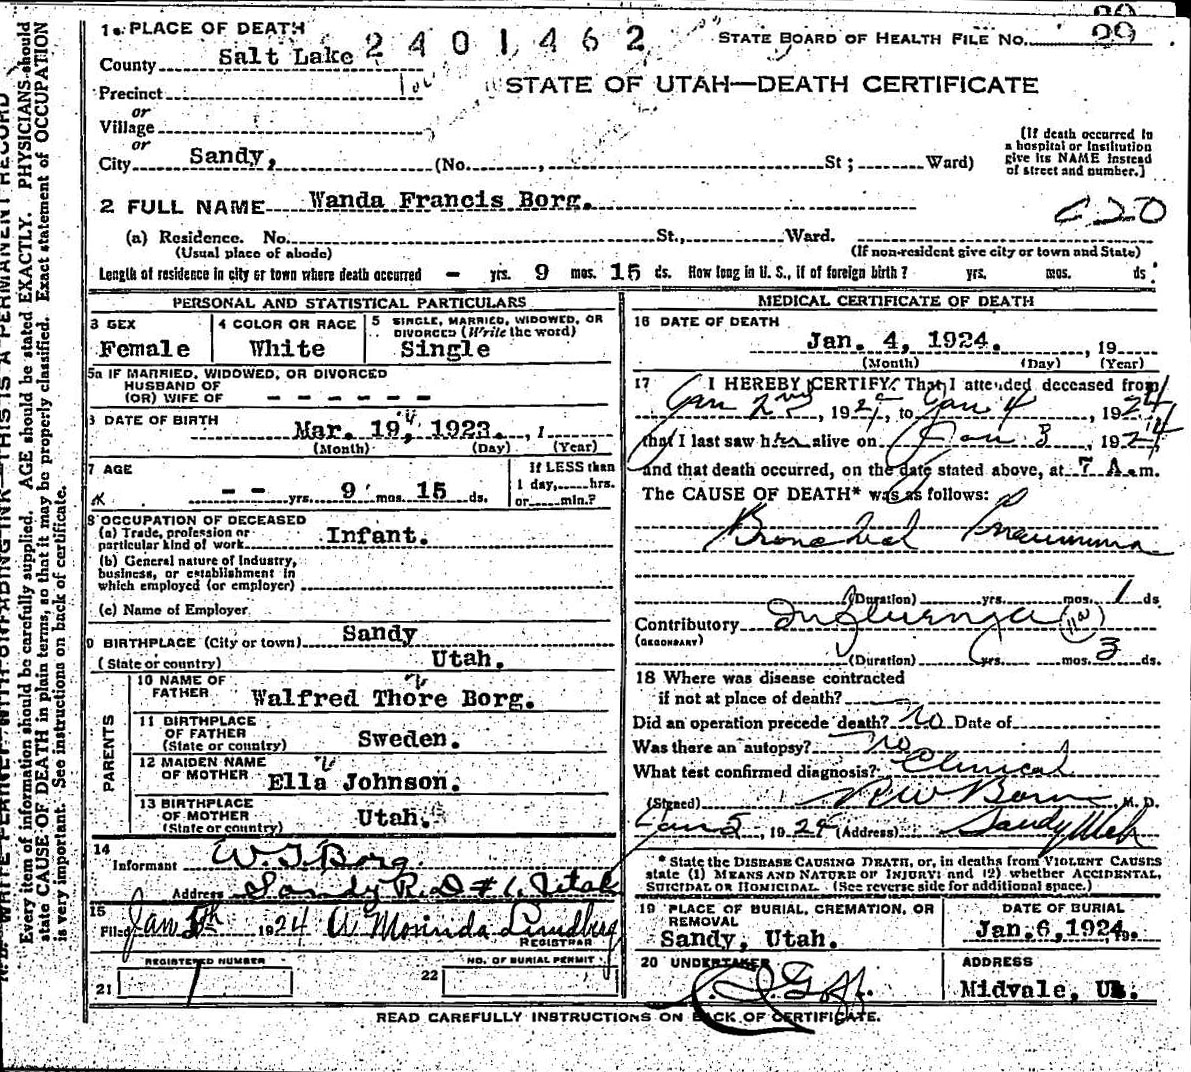 1. PLACE OF DEATH
2401462
STATE BOARD OF HEALTH FILE NO. 29
County Salt Lake
STATE OF UTAH—DEATH CERTIFICATE
Precinct
or
Village
or
City Sandy, (No. , St; Ward)
(If death occurred in a hospital or institution give its NAME instead of street and number.)
2 FULL NAME Wanda Francis Borg.
C20
(a) Residence. No. St., Ward.
(Usual place of abode) (If non-resident give city or town and State)
Length of residence in city or town where death occurred - yrs. 9 mos. 15 ds. How long in U. S., if of foreign birth? yrs. mos. ds.
PERSONAL AND STATISTICAL PARTICULARS
3 SEX Female
4 COLOR OR RACE White
5 SINGLE, MARRIED, WIDOWED, OR DIVORCED (Write the word) Single
5a IF MARRIED, WIDOWED, OR DIVORCED
HUSBAND OF
(OR) WIFE OF - - - - - -
6 DATE OF BIRTH Mar. 19, 1923. , 1
(Month) (Day) (Year)
7 AGE
-- yrs. 9 mos. 15 ds.
If LESS than
1 day, hrs.
or min.?
8 OCCUPATION OF DECEASED
(a) Trade, profession or
particular kind of work Infant.
(b) General nature of Industry,
business, or establishment in
which employed (or employer)
(c) Name of Employer
9 BIRTHPLACE (City or town) Sandy
(State or country) Utah.
PARENTS
10 NAME OF FATHER Walfred Thore Borg.
11 BIRTHPLACE OF FATHER (State or country) Sweden.
12 MAIDEN NAME OF MOTHER Ella Johnson.
13 BIRTHPLACE OF MOTHER (State or country) Utah.
14
Informant W. T. Borg.
Address Sandy R.D #1. Utah
15
Filed Jan 5th 1924 A Morinda Lundberg
REGISTRAR
REGISTERED NUMBER
21 1
NO. OF BURIAL PERMIT
22
MEDICAL CERTIFICATE OF DEATH
16 DATE OF DEATH
Jan. 4, 1924. , 19
(Month) (Day) (Year)
17 I HEREBY CERTIFY, That I attended deceased from
Jan 2nd, 1924, to Jan 4, 1924,
that I last saw her alive on Jan 3, 1924
and that death occurred, on the date stated above, at 7 A.m.
The CAUSE OF DEATH* was as follows:
Bronchial Pneumonia
(Duration) yrs. mos. 1 ds.
Contributory Influenza
(SECONDARY)
(Duration) yrs. mos. 3 ds.
18 Where was disease contracted
if not at place of death?
Did an operation precede death? No Date of
Was there an autopsy? No
What test confirmed diagnosis? Clinical
(Signed) M. D.
Jan 5, 1924 (Address) Sandy Utah
* State the DISEASE CAUSING DEATH, or, in deaths from VIOLENT CAUSES
state (1) MEANS AND NATURE OF INJURY; and (2) whether ACCIDENTAL,
SUICIDAL OR HOMICIDAL. (See reverse side for additional space.)
19 PLACE OF BURIAL, CREMATION, OR REMOVAL
Sandy, Utah.
DATE OF BURIAL
Jan. 6, 1924. 19
20 UNDERTAKER
Goff.
ADDRESS
Midvale, Ut.
READ CAREFULLY INSTRUCTIONS ON BACK OF CERTIFICATE.
N. B.—WRITE PLAINLY WITH UNFADING INK—THIS IS A PERMANENT RECORD
Every item of information should be carefully supplied. AGE should be stated EXACTLY. PHYSICIANS should
state CAUSE OF DEATH in plain terms, so that it may be properly classified. Exact statement of OCCUPATION
is very important. See instructions on back of certificate.